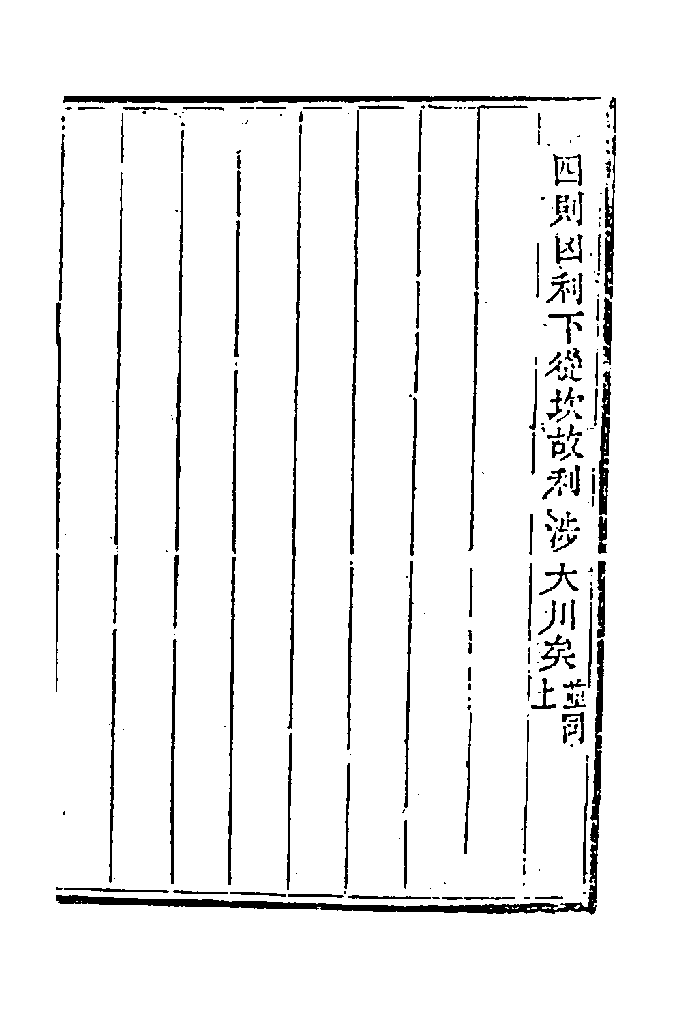 四則凶利下從坎故利涉大川矣並同上